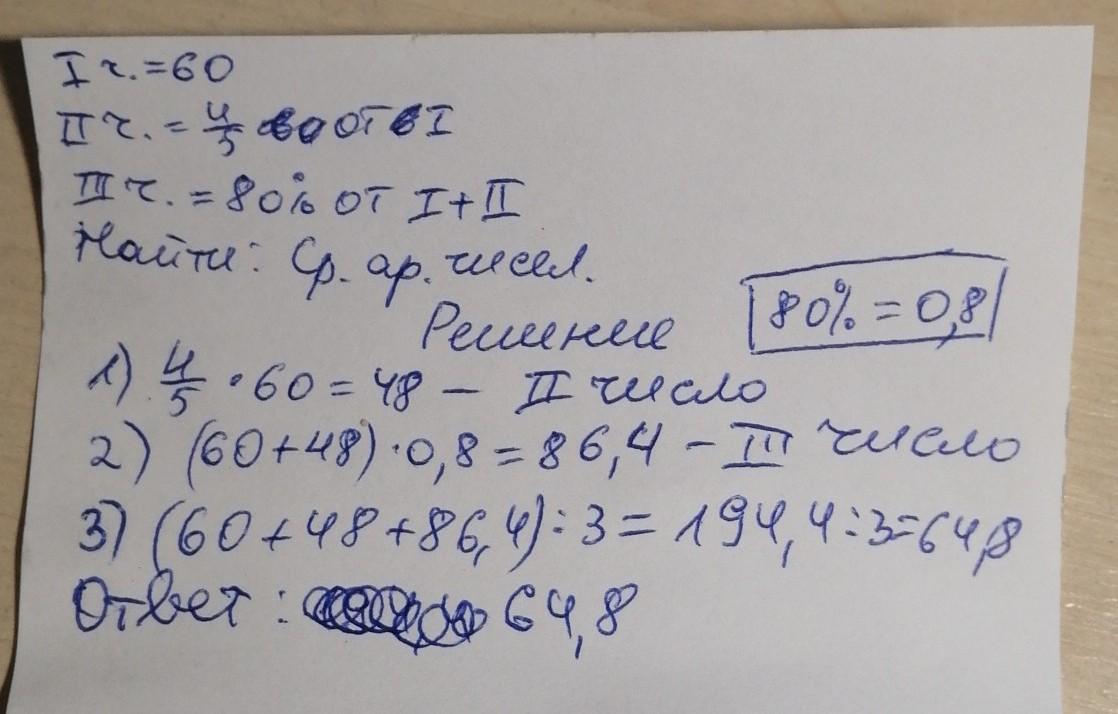 I ч. = 60
II ч. = 4/5 от I
III ч. = 80% от I + II
Найти: Ср. ар. чисел.
Решение
80% = 0,8
1) 4/5 · 60 = 48 – II число
2) (60 + 48) · 0,8 = 86,4 – III число
3) (60 + 48 + 86,4) : 3 = 194,4 : 3 = 64,8
Ответ: 64,8